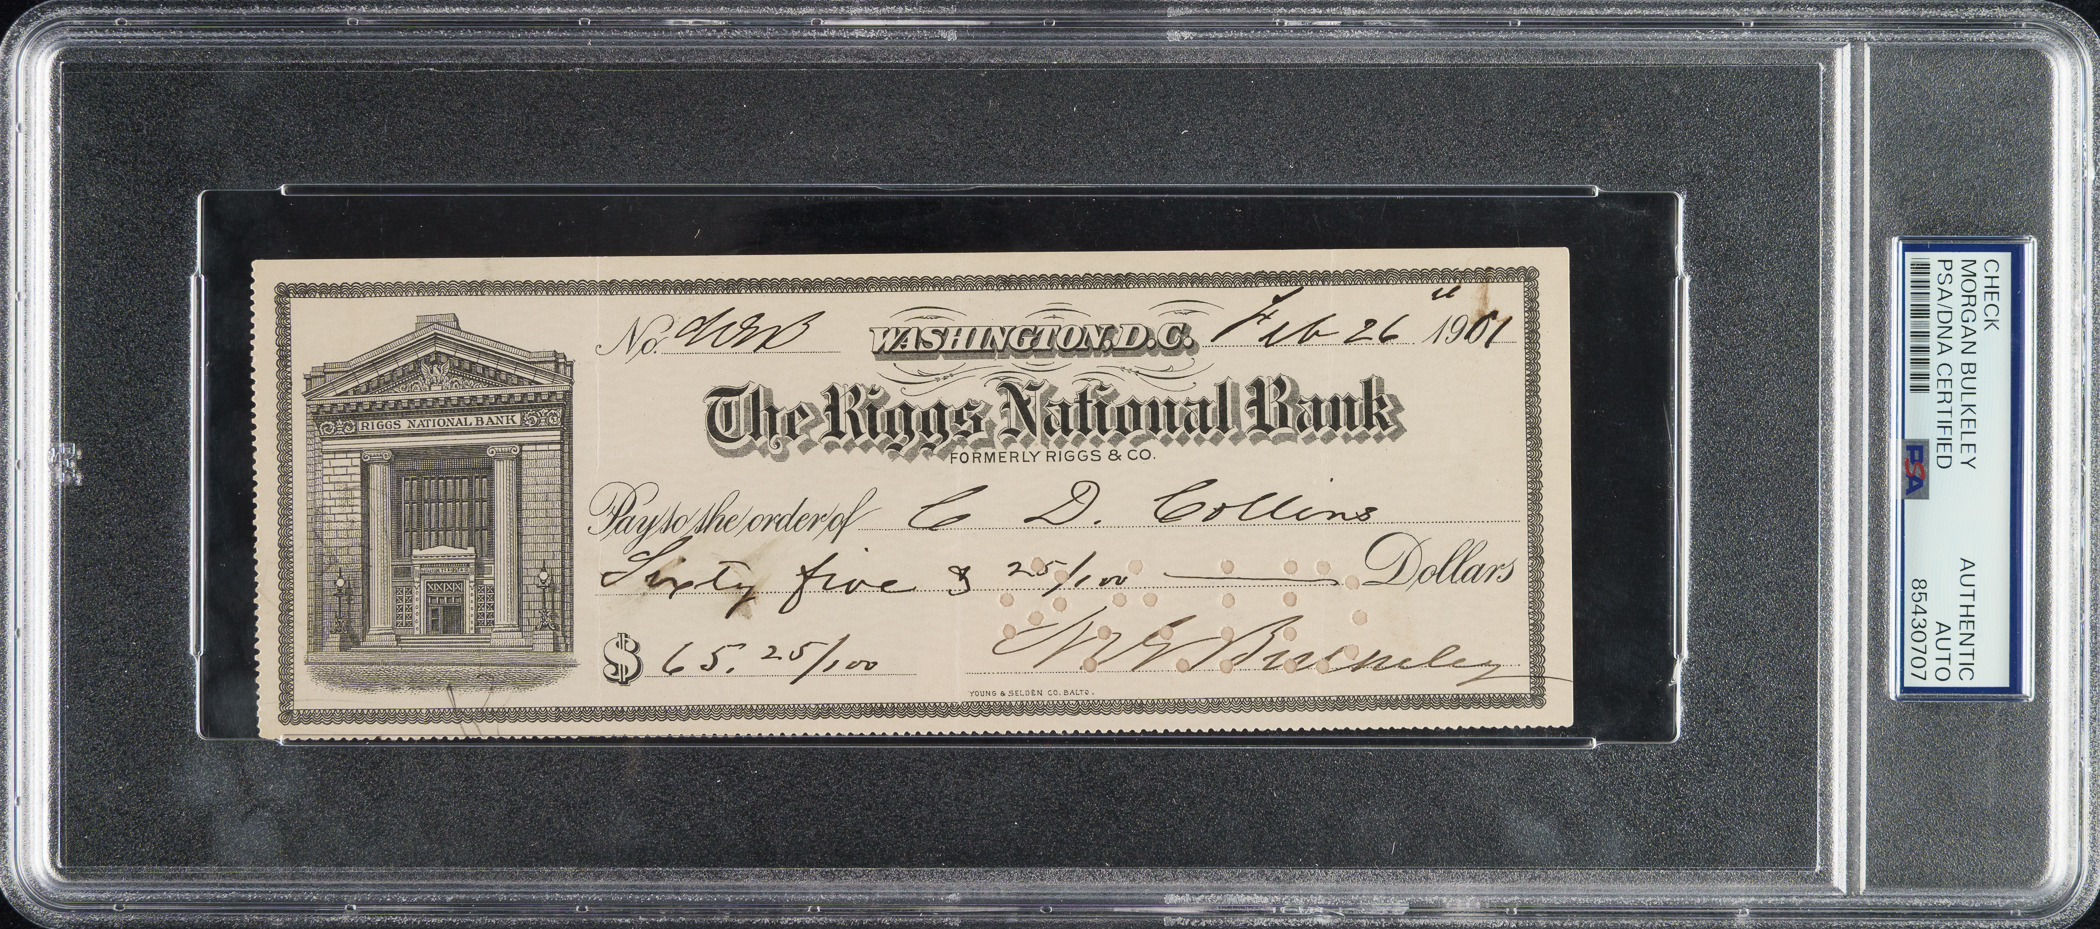 No.
WASHINGTON, D.C. Feb 26 1901
The Riggs National Bank
FORMERLY RIGGS & CO.
RIGGS NATIONAL BANK
Pay to the order of C D. Collins
Sixty five & 25/100 Dollars
$ 65. 25/100 M G Bulkeley
YOUNG & SELDEN CO. BALTO.
CHECK
MORGAN BULKELEY AUTHENTIC
PSA/DNA CERTIFIED AUTO
PSA 85430707